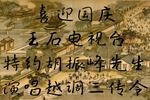 喜迎国庆
玉石电视台
特约胡振峰先生
演唱越调三传令